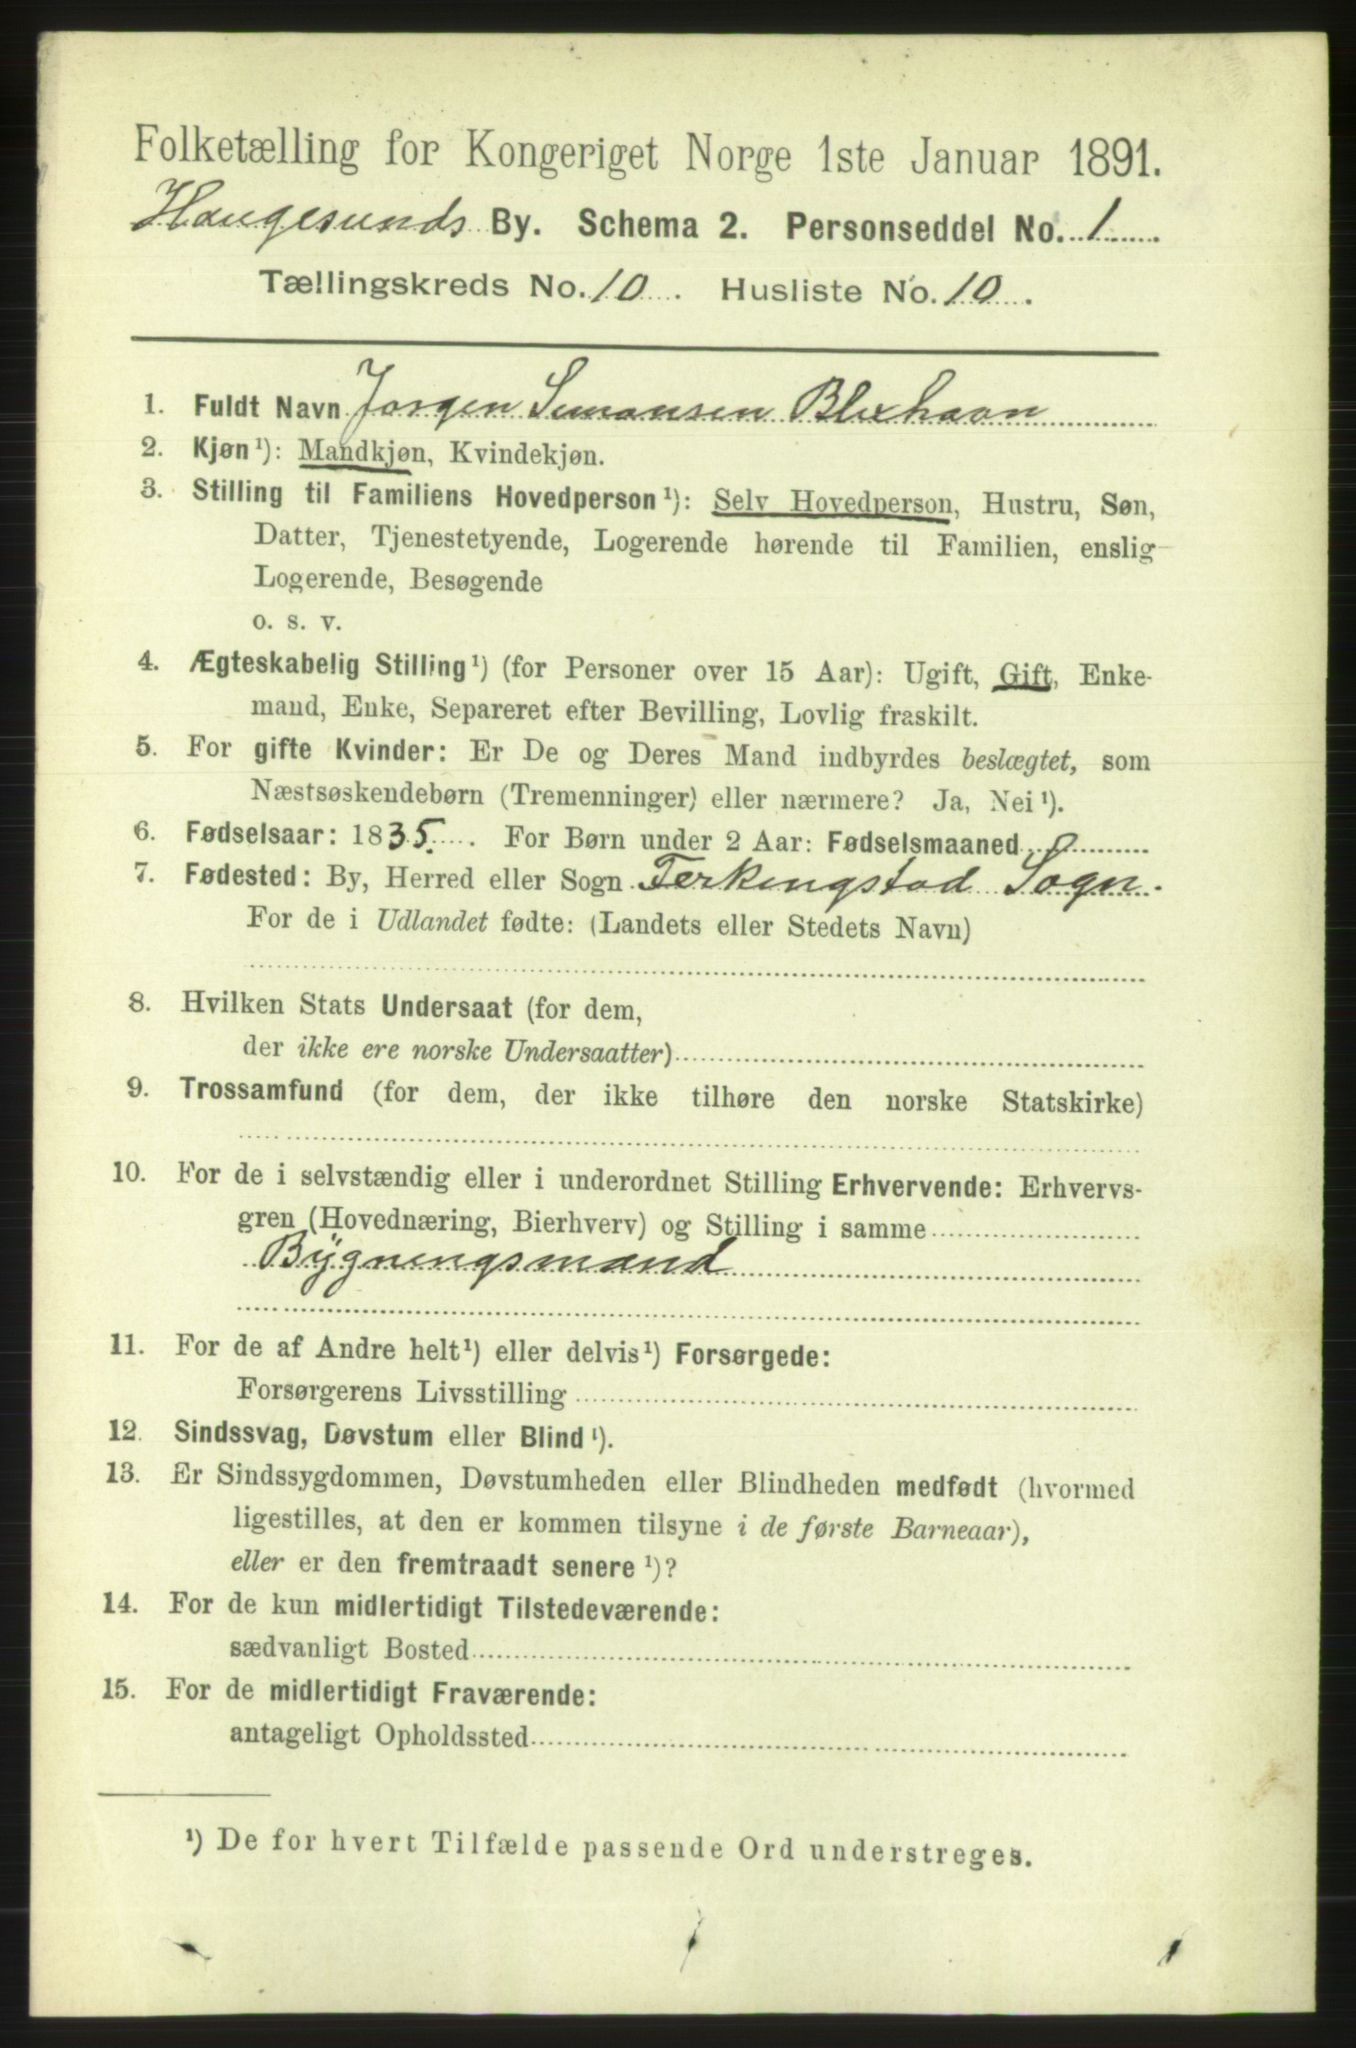 Folketælling for Kongeriget Norge 1ste Januar 1891.
Haugesunds By. Schema 2. Personseddel No. 1
Tællingskreds No. 10. Husliste No. 10.
1. Fuldt Navn Jørgen Simonsen Blixhavn
2. Kjøn¹): Mandkjøn, Kvindekjøn.
3. Stilling til Familiens Hovedperson¹): Selv Hovedperson, Hustru, Søn,
Datter, Tjenestetyende, Logerende hørende til Familien, enslig
Logerende, Besøgende
o. s. v.
4. Ægteskabelig Stilling¹) (for Personer over 15 Aar): Ugift, Gift, Enke-
mand, Enke, Separeret efter Bevilling, Lovlig fraskilt.
5. For gifte Kvinder: Er De og Deres Mand indbyrdes beslægtet, som
Næstsøskendebørn (Tremenninger) eller nærmere? Ja, Nei¹).
6. Fødselsaar: 1835. For Børn under 2 Aar: Fødselsmaaned
7. Fødested: By, Herred eller Sogn Ferkingstad Sogn.
For de i Udlandet fødte: (Landets eller Stedets Navn)
8. Hvilken Stats Undersaat (for dem,
der ikke ere norske Undersaatter)
9. Trossamfund (for dem, der ikke tilhøre den norske Statskirke)
10. For de i selvstændig eller i underordnet Stilling Erhvervende: Erhvervs-
gren (Hovednæring, Bierhverv) og Stilling i samme
Bygningsmand
11. For de af Andre helt¹) eller delvis¹) Forsørgede:
Forsørgerens Livsstilling
12. Sindssvag, Døvstum eller Blind¹).
13. Er Sindssygdommen, Døvstumheden eller Blindheden medfødt (hvormed
ligestilles, at den er kommen tilsyne i de første Barneaar),
eller er den fremtraadt senere¹)?
14. For de kun midlertidigt Tilstedeværende:
sædvanligt Bosted
15. For de midlertidigt Fraværende:
antageligt Opholdssted
¹) De for hvert Tilfælde passende Ord understreges.